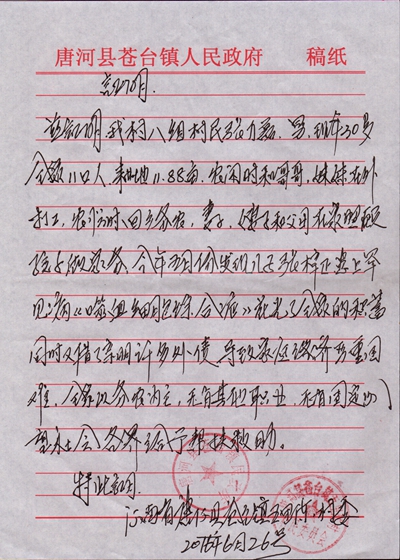 唐河县苍台镇人民政府 稿纸
证明
兹证明我村八组村民张力磊,男,现年30岁
全家11口人,耕地11.88亩,农闲时和哥哥、妹妹在外
打工,农忙时回乡务农,妻子、嫂子和父母在家照顾
孩子做家务,今年五月份发现儿子张梓 患上罕
见病《噬血细胞综合症》花光了全家的积蓄
同时又借了亲朋许多外债,导致家庭经济严重困
难,全家以务农为主,无有其他职业,无有固定
望社会各界给予帮扶救助。
特此证明
河南省唐河县仓台镇 村委
6月26号